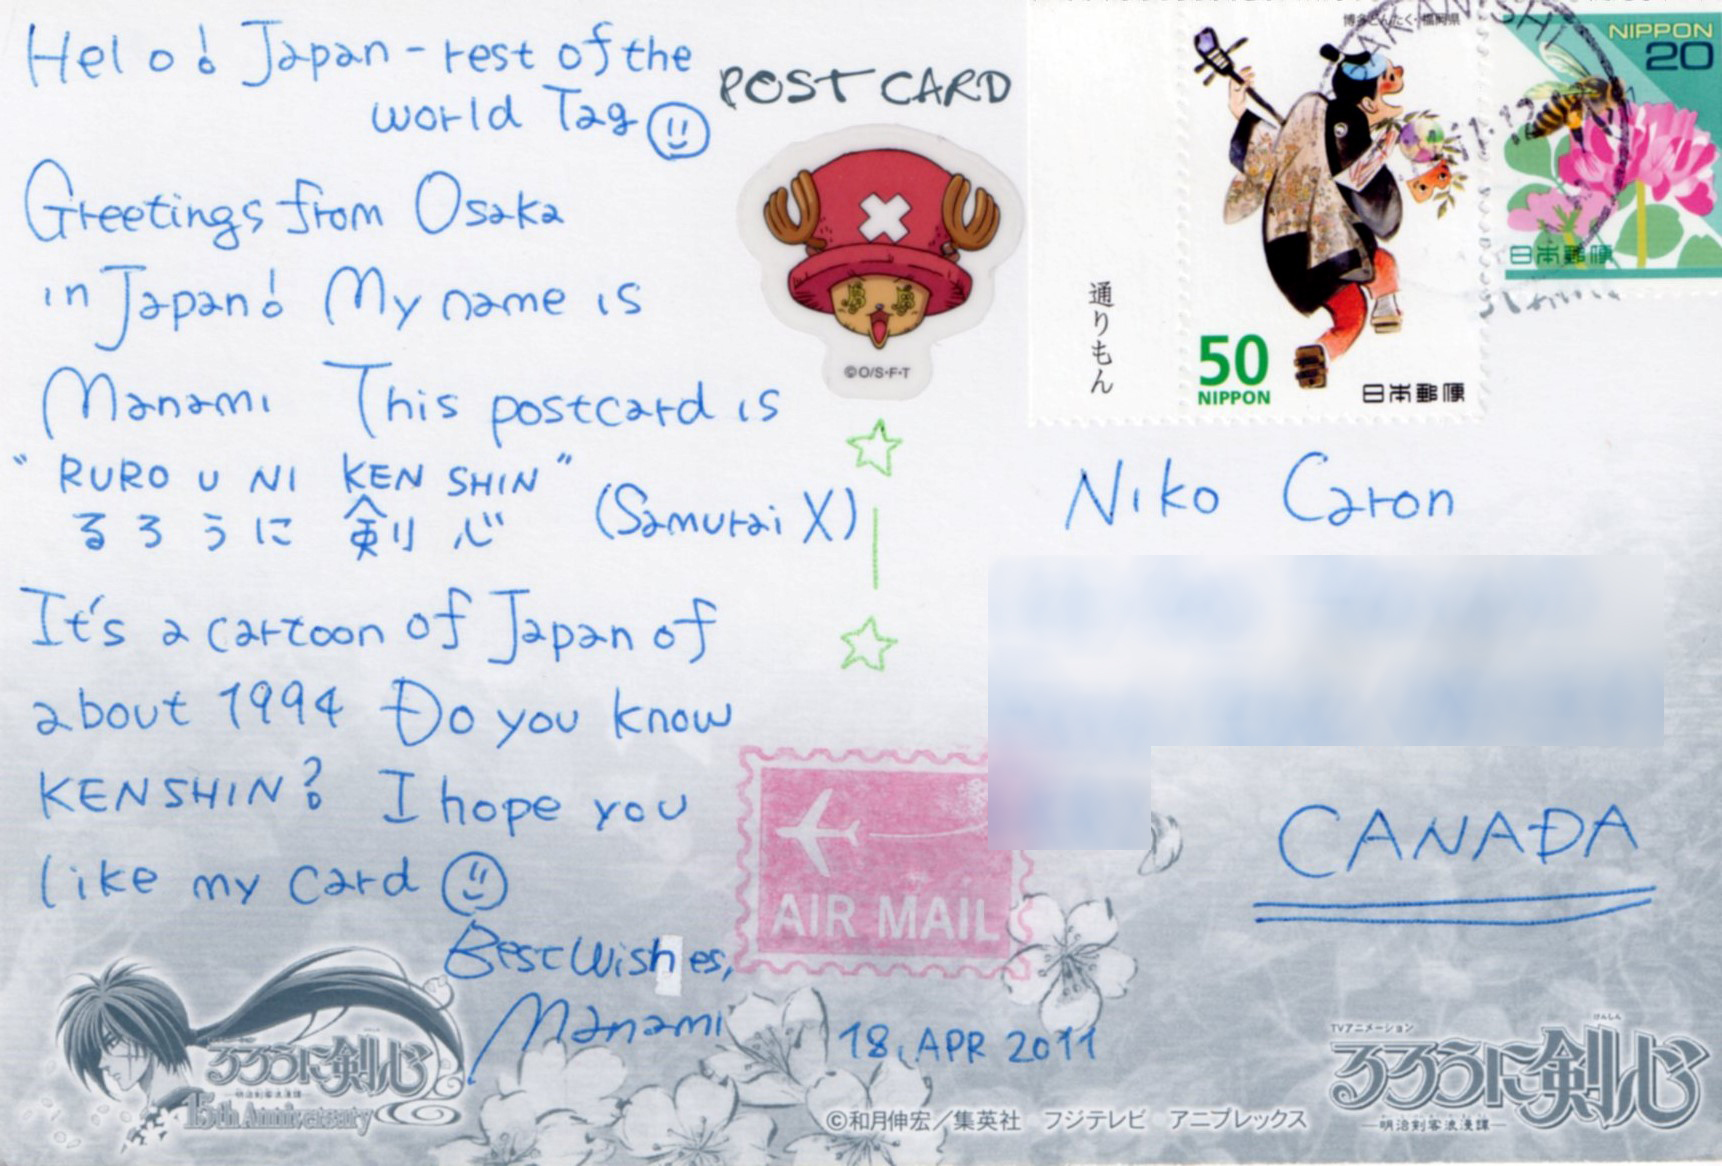 Helo! Japan - rest of the
world Tag
Greetings from Osaka
in Japan! My name is
Manami This postcard is
"RURO U NI KEN SHIN"
るろうに 剣心 (Samurai X)
It's a cartoon of Japan of
about 1994 Do you know
KENSHIN? I hope you
like my card
Best Wishes,
Manami
18. APR 2011
POST CARD
©O/S・F・T
AIR MAIL
博多どんたく・福岡県
通りもん
50
NIPPON
日本郵便
NIPPON
20
日本郵便
Niko Caron
CANADA
るろうに剣心
―明治剣客浪漫譚―
15th Anniversary
©和月伸宏／集英社 フジテレビ アニプレックス
TVアニメーション
けんしん
るろうに剣心
―明治剣客浪漫譚―